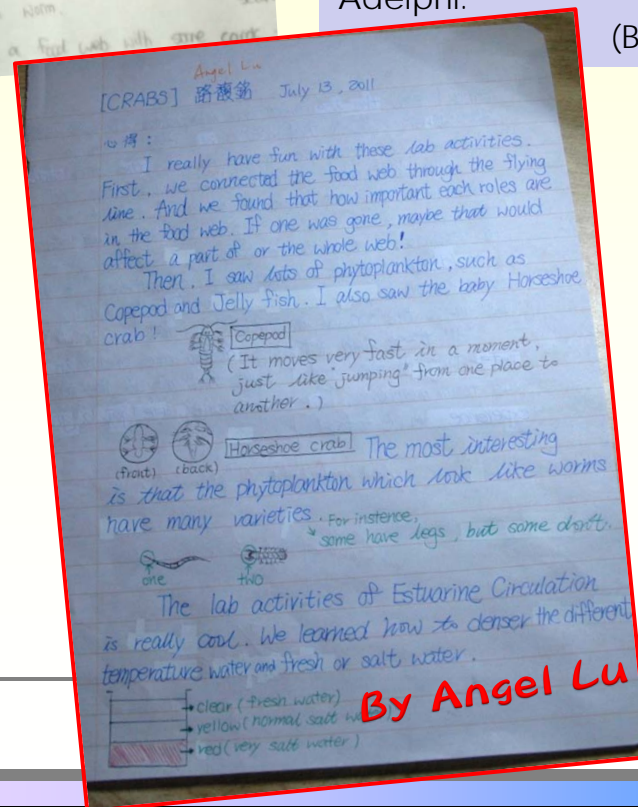 Worm.
a food web with some
Adelphi.
(B
Angel Lu
[CRABS] 路馥銘 July 13, 2011
心得：
I really have fun with these lab activities.
First, we connected the food web through the flying
line. And we found that how important each roles are
in the food web. If one was gone, maybe that would
affect a part of or the whole web!
Then, I saw lots of phytoplankton, such as
Copepod and Jelly fish. I also saw the baby Horseshoe
crab!
Copepod
(It moves very fast in a moment,
just like "jumping" from one place to
another.)
(front) (back) Horseshoe crab The most interesting
is that the phytoplankton which look like worms
have many varieties. For instence,
some have legs, but some don't.
one two
The lab activities of Estuarine Circulation
is really cool. We learned how to denser the different
temperature water and fresh or salt water.
clear (fresh water)
yellow (normal salt
red (very salt water)
By Angel Lu